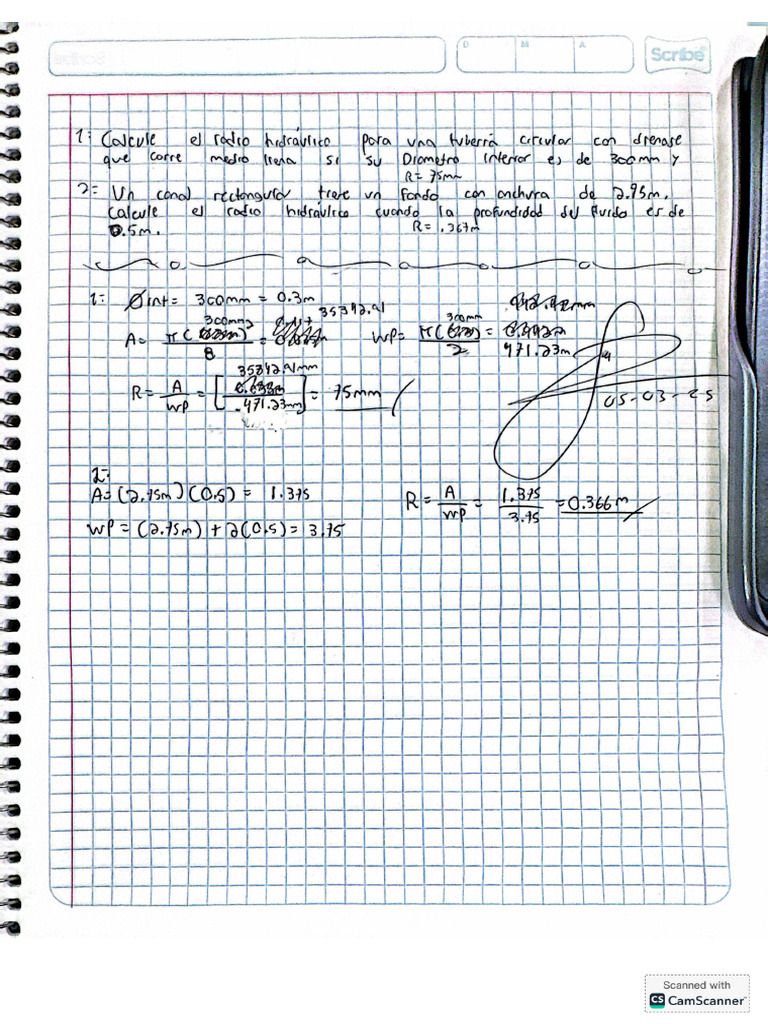 Scribe
D M A
1: Calcule el radio hidráulico para una tuberia circular con drenaje
que corre medio llena si su Diametro interior es de 300mm y
R= 75mm
2= Un canal rectangular tiene un fondo con anchura de 2.75m.
Calcule el radio hidráulico cuando la profundidad del fluido es de
0.5m. R=.367m
1: Øint= 300mm = 0.3m
A= π(300mm)² / 8 = 35342.91
WP= π(300) / 2 = 471.23m
R= A / WP = [35342.91mm / 471.23mm] = 75mm
05-03-25
2:
A=(2.75m)(0.5) = 1.375
R = A / WP = 1.375 / 3.75 = 0.366m
WP = (2.75m) + 2(0.5) = 3.75
Scanned with
CS CamScanner